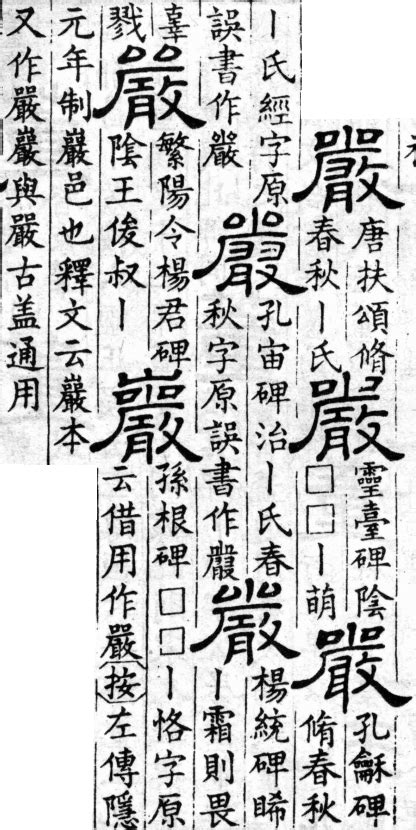 嚴
唐扶頌脩
春秋丨氏
嚴
靈臺碑陰
□□丨萌
嚴
孔龢碑
脩春秋
丨氏經字原
誤書作嚴
嚴
孔宙碑治丨氏春
秋字原誤書作嚴
嚴
楊統碑睎
丨霜則畏
辜
戮
嚴
繁陽令楊君碑
陰王俊叔丨
嚴
孫根碑□□丨恪字原
云借用作嚴按左傳隱
元年制巖邑也釋文云巖本
又作嚴巖與嚴古盖通用